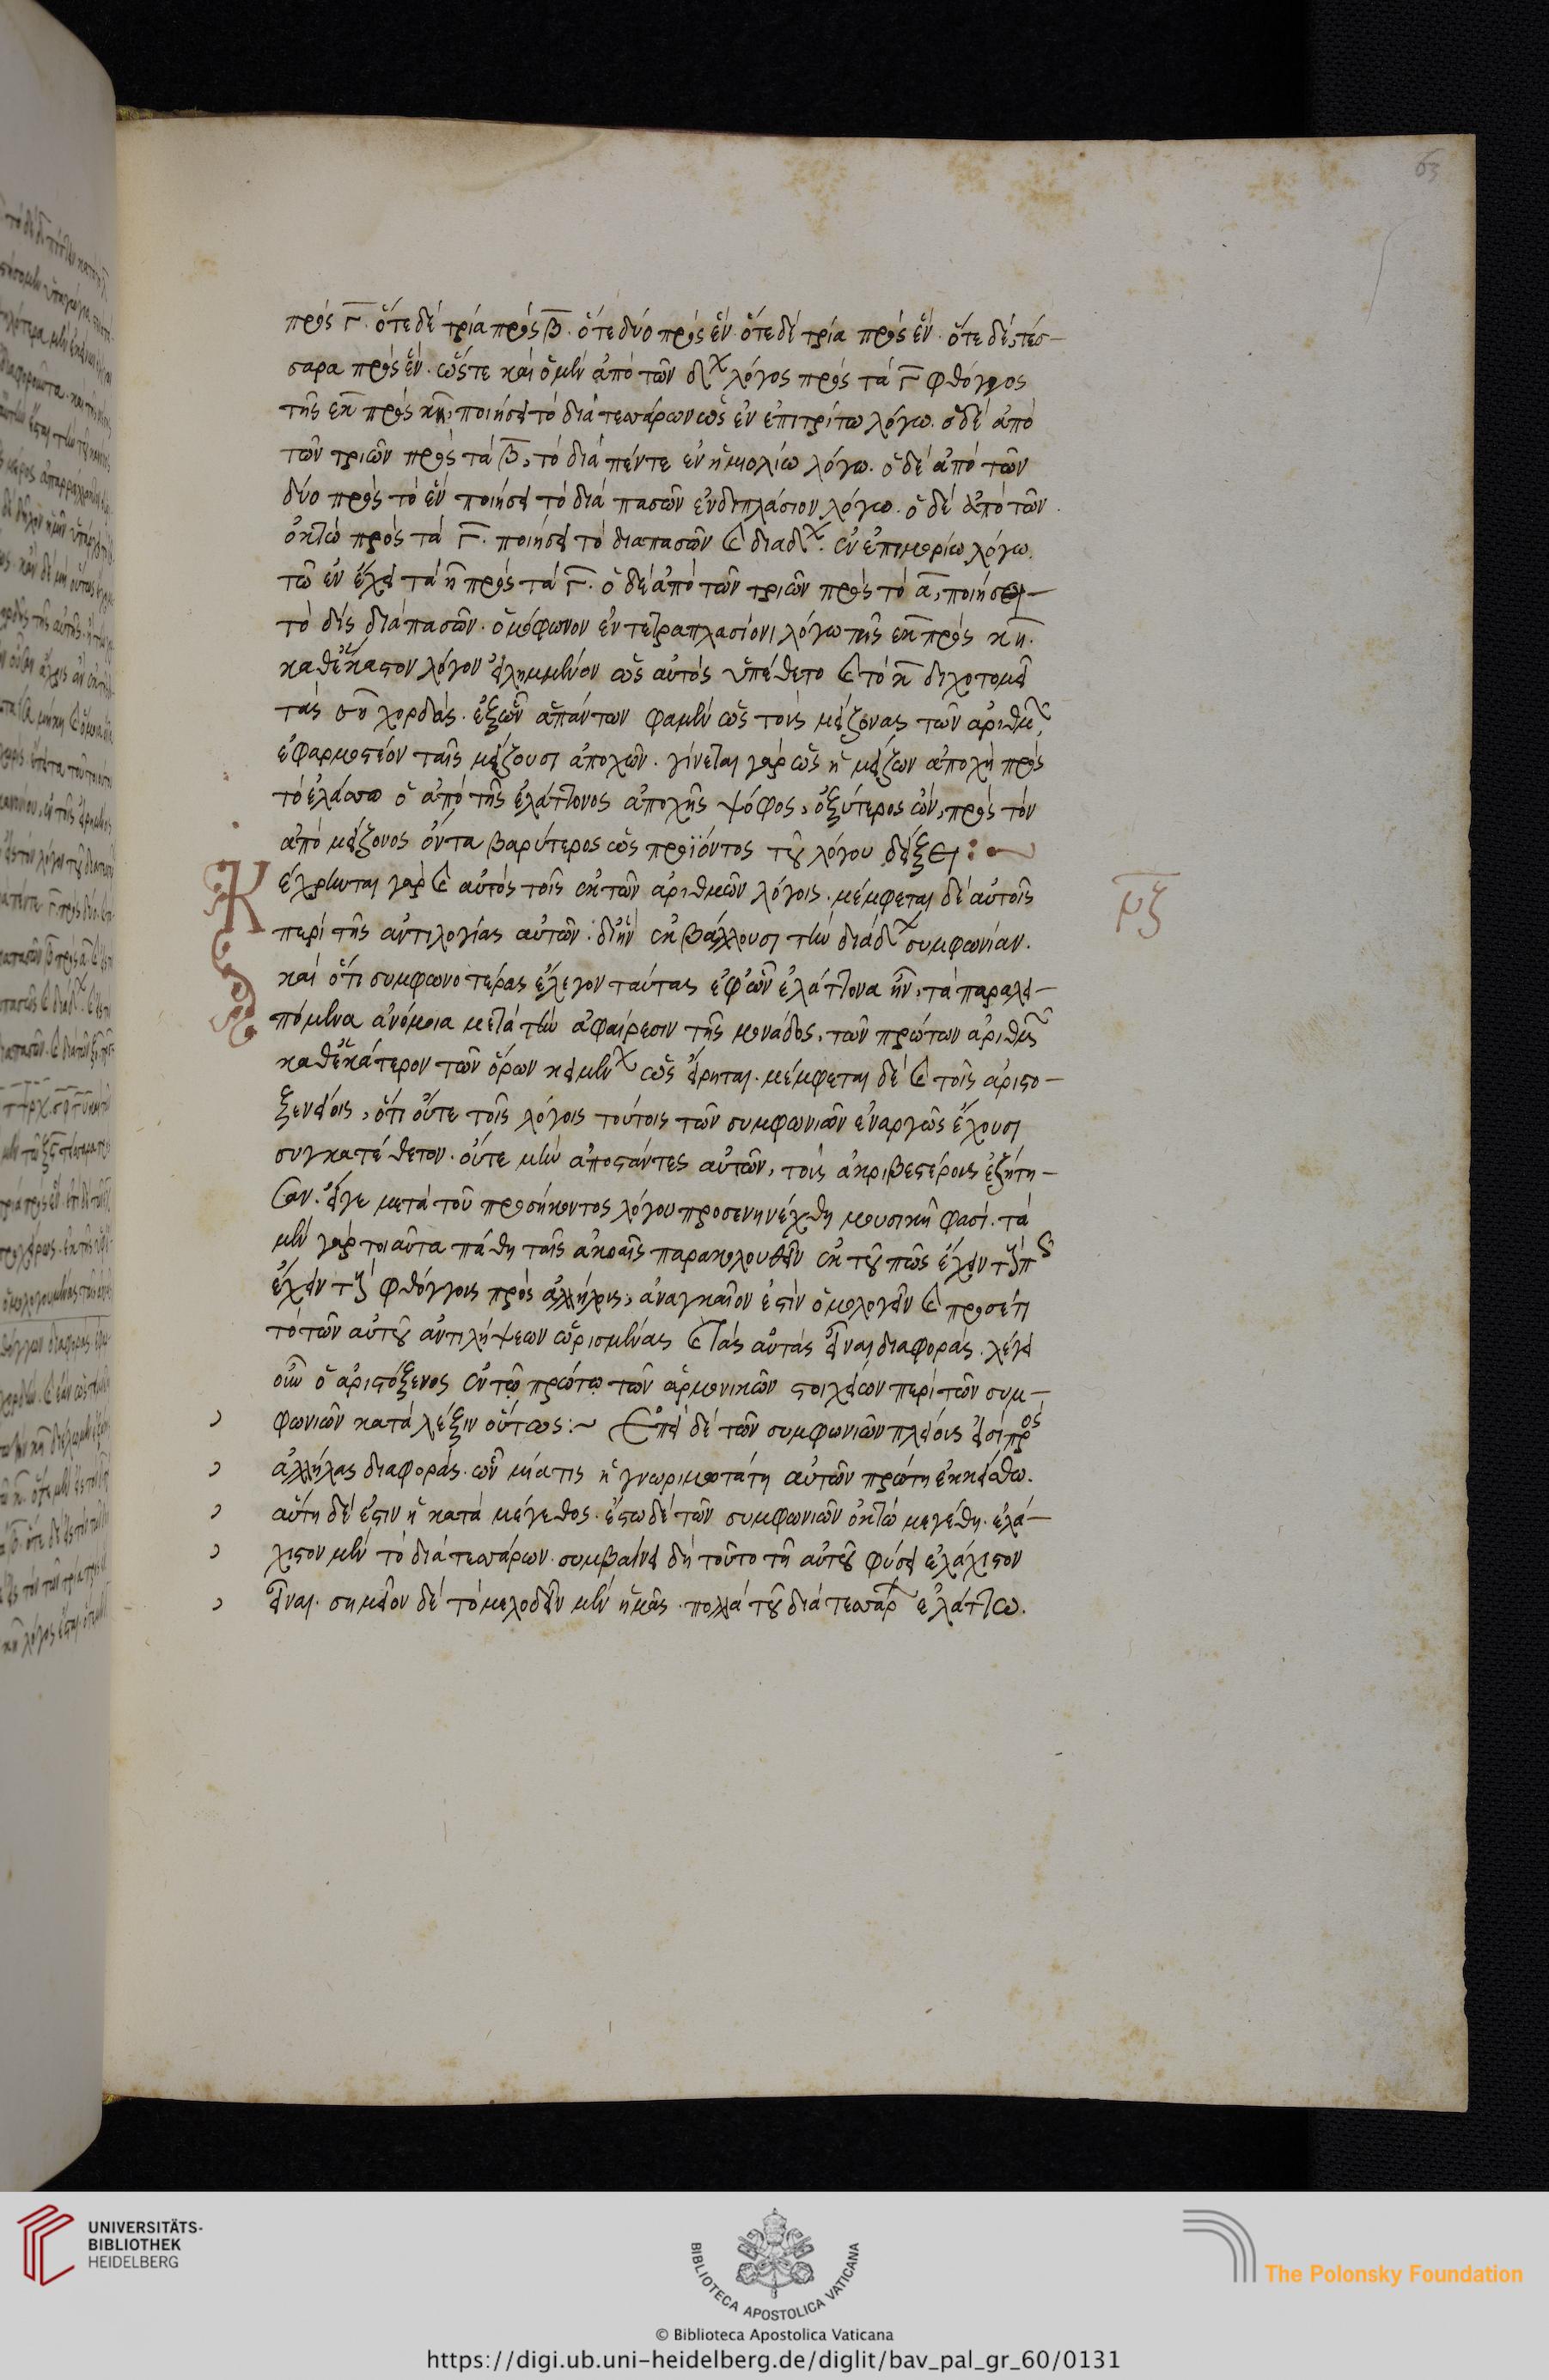 63
πρὸς Γ. ὅτε δὲ τρία πρὸς β. ὅτε δύο πρὸς ἕν. ὅτε δὲ τρία πρὸς ἕν. ὅτε δὲ τέσ-
σαρα πρὸς ἕν. ὥστε καὶ ὁ μὲν ἀπὸ τῶν δχ λόγος πρὸς τὰ Γ φθόγγος
τῆς εκ πρὸς κη, ποιήσει τὸ διὰ τεσσάρων ὡς ἐν ἐπιτρίτω λόγω. ὁ δὲ ἀπὸ
τῶν τριῶν πρὸς τὰ β, τὸ διὰ πέντε ἐν ἡμιολίω λόγω. ὁ δὲ ἀπὸ τῶν
δύο πρὸς τὸ ἓν ποιήσει τὸ διὰ πασῶν ἐν διπλάσιον λόγω. ὁ δὲ ἀπὸ τῶν
ὀκτὼ πρὸς τὰ Γ. ποιήσει τὸ διαπασῶν καὶ διὰ δχ. ἐν ἐπιμορίω λόγω.
τῶ ἐν ἔχει τὰ η πρὸς τὰ Γ. ὁ δὲ ἀπὸ τῶν τριῶν πρὸς τὸ α, ποιήσει
τὸ δὶς διὰ πασῶν. ὁμόφωνον ἐν τετραπλασίονι λόγω τῆς εκ πρὸς κη.
καθ' ἕκαστον λόγον εἰλημμένον ὡς αὐτὸς ὑπέθετο καὶ τὸ κ διχοτομεῖ
τὰς χορδάς. ἐξ ὧν ἁπάντων φαμὲν ὡς τοὺς μείζονας τῶν ἀριθμ
ἐφαρμοστέον ταῖς μείζουσι ἀποχῶν. γίνεται γὰρ ὡς ἡ μείζων ἀποχὴ πρὸς
τὸ ἐλάσσω ὁ ἀπὸ τῆς ἐλάττονος ἀποχῆς ψόφος, ὀξύτερος ὤν, πρὸς τὸν
ἀπὸ μείζονος ὄντα βαρύτερος ὡς προϊόντος τοῦ λόγου δείξει:
Κέχρηνται γὰρ καὶ αὐτὸς τοῖς ἐκ τῶν ἀριθμῶν λόγοις. μέμφεται δὲ αὐτοῖς
μζ
περὶ τῆς ἀντιλογίας αὐτῶν. δι' ἣν ἐκβάλλουσι τὴν διὰ δχ συμφωνίαν.
καὶ ὅτι συμφωνοτέρας ἔλεγον ταύτας ἐφ' ὧν ἐλάττονα ἦν, τὰ παραλει-
πόμενα ἀνόμοια μετὰ τὴν ἀφαίρεσιν τῆς μονάδος, τῶν πρώτων ἀριθμ
καθ' ἑκάτερον τῶν ὅρων κειμένχ ὡς εἴρηται. μέμφεται δὲ καὶ τοῖς ἀριστο-
ξενείοις, ὅτι οὔτε τοῖς λόγοις τούτοις τῶν συμφωνιῶν ἐναργῶς ἔχουσι
συγκατέθετον. οὔτε μὴν ἀποστάντες αὐτῶν, τοὺς ἀκριβεστέρους ἐζήτη-
σαν. εἴγε μετὰ τοῦ προσήκοντος λόγου προσενηνέχθη μουσικῆ φασί. τὰ
μὲν γὰρ τοιαῦτα πάθη ταῖς ἀκοαῖς παρακολουθεῖν ἐκ τοῦ πῶς ἔχειν
ἔχειν φθόγγοις πρὸς ἀλλήλους, ἀναγκαῖον ἐστὶν ὁμολογεῖν καὶ προσέτι
τὸ τῶν αὐτοῦ ἀντιλήψεων ὡρισμένας καὶ τὰς αὐτὰς εἶναι διαφοράς. λέγει
οὖν ὁ ἀριστόξενος ἐν τῷ πρώτῳ τῶν ἁρμονικῶν στοιχείων περὶ τῶν συμ-
φωνιῶν κατὰ λέξιν οὕτως:~ Ἐπεὶ δὲ τῶν συμφωνιῶν πλείους εἰσὶ πρὸς
ἀλλήλας διαφοράς. ὧν μία τις ἡ γνωριμωτάτη αὐτῶν πρώτη ἐκκείσθω.
αὕτη δὲ ἐστιν ἡ κατὰ μέγεθος. ἔστω δὲ τῶν συμφωνιῶν ὀκτὼ μεγέθη. ἐλά-
χιστον μὲν τὸ διὰ τεσσάρων. συμβαίνει δὴ τοῦτο τῆ αὐτοῦ φύσει ἐλάχιστον
εἶναι. σημεῖον δὲ τὸ μελοδεῖν μὲν ἡμᾶς. πολλὰ τοῦ διὰ τεσσάρ ἐλάττω.
UNIVERSITÄTS-
BIBLIOTHEK
HEIDELBERG
BIBLIOTECA APOSTOLICA VATICANA
The Polonsky Foundation
© Biblioteca Apostolica Vaticana
https://digi.ub.uni-heidelberg.de/diglit/bav_pal_gr_60/0131